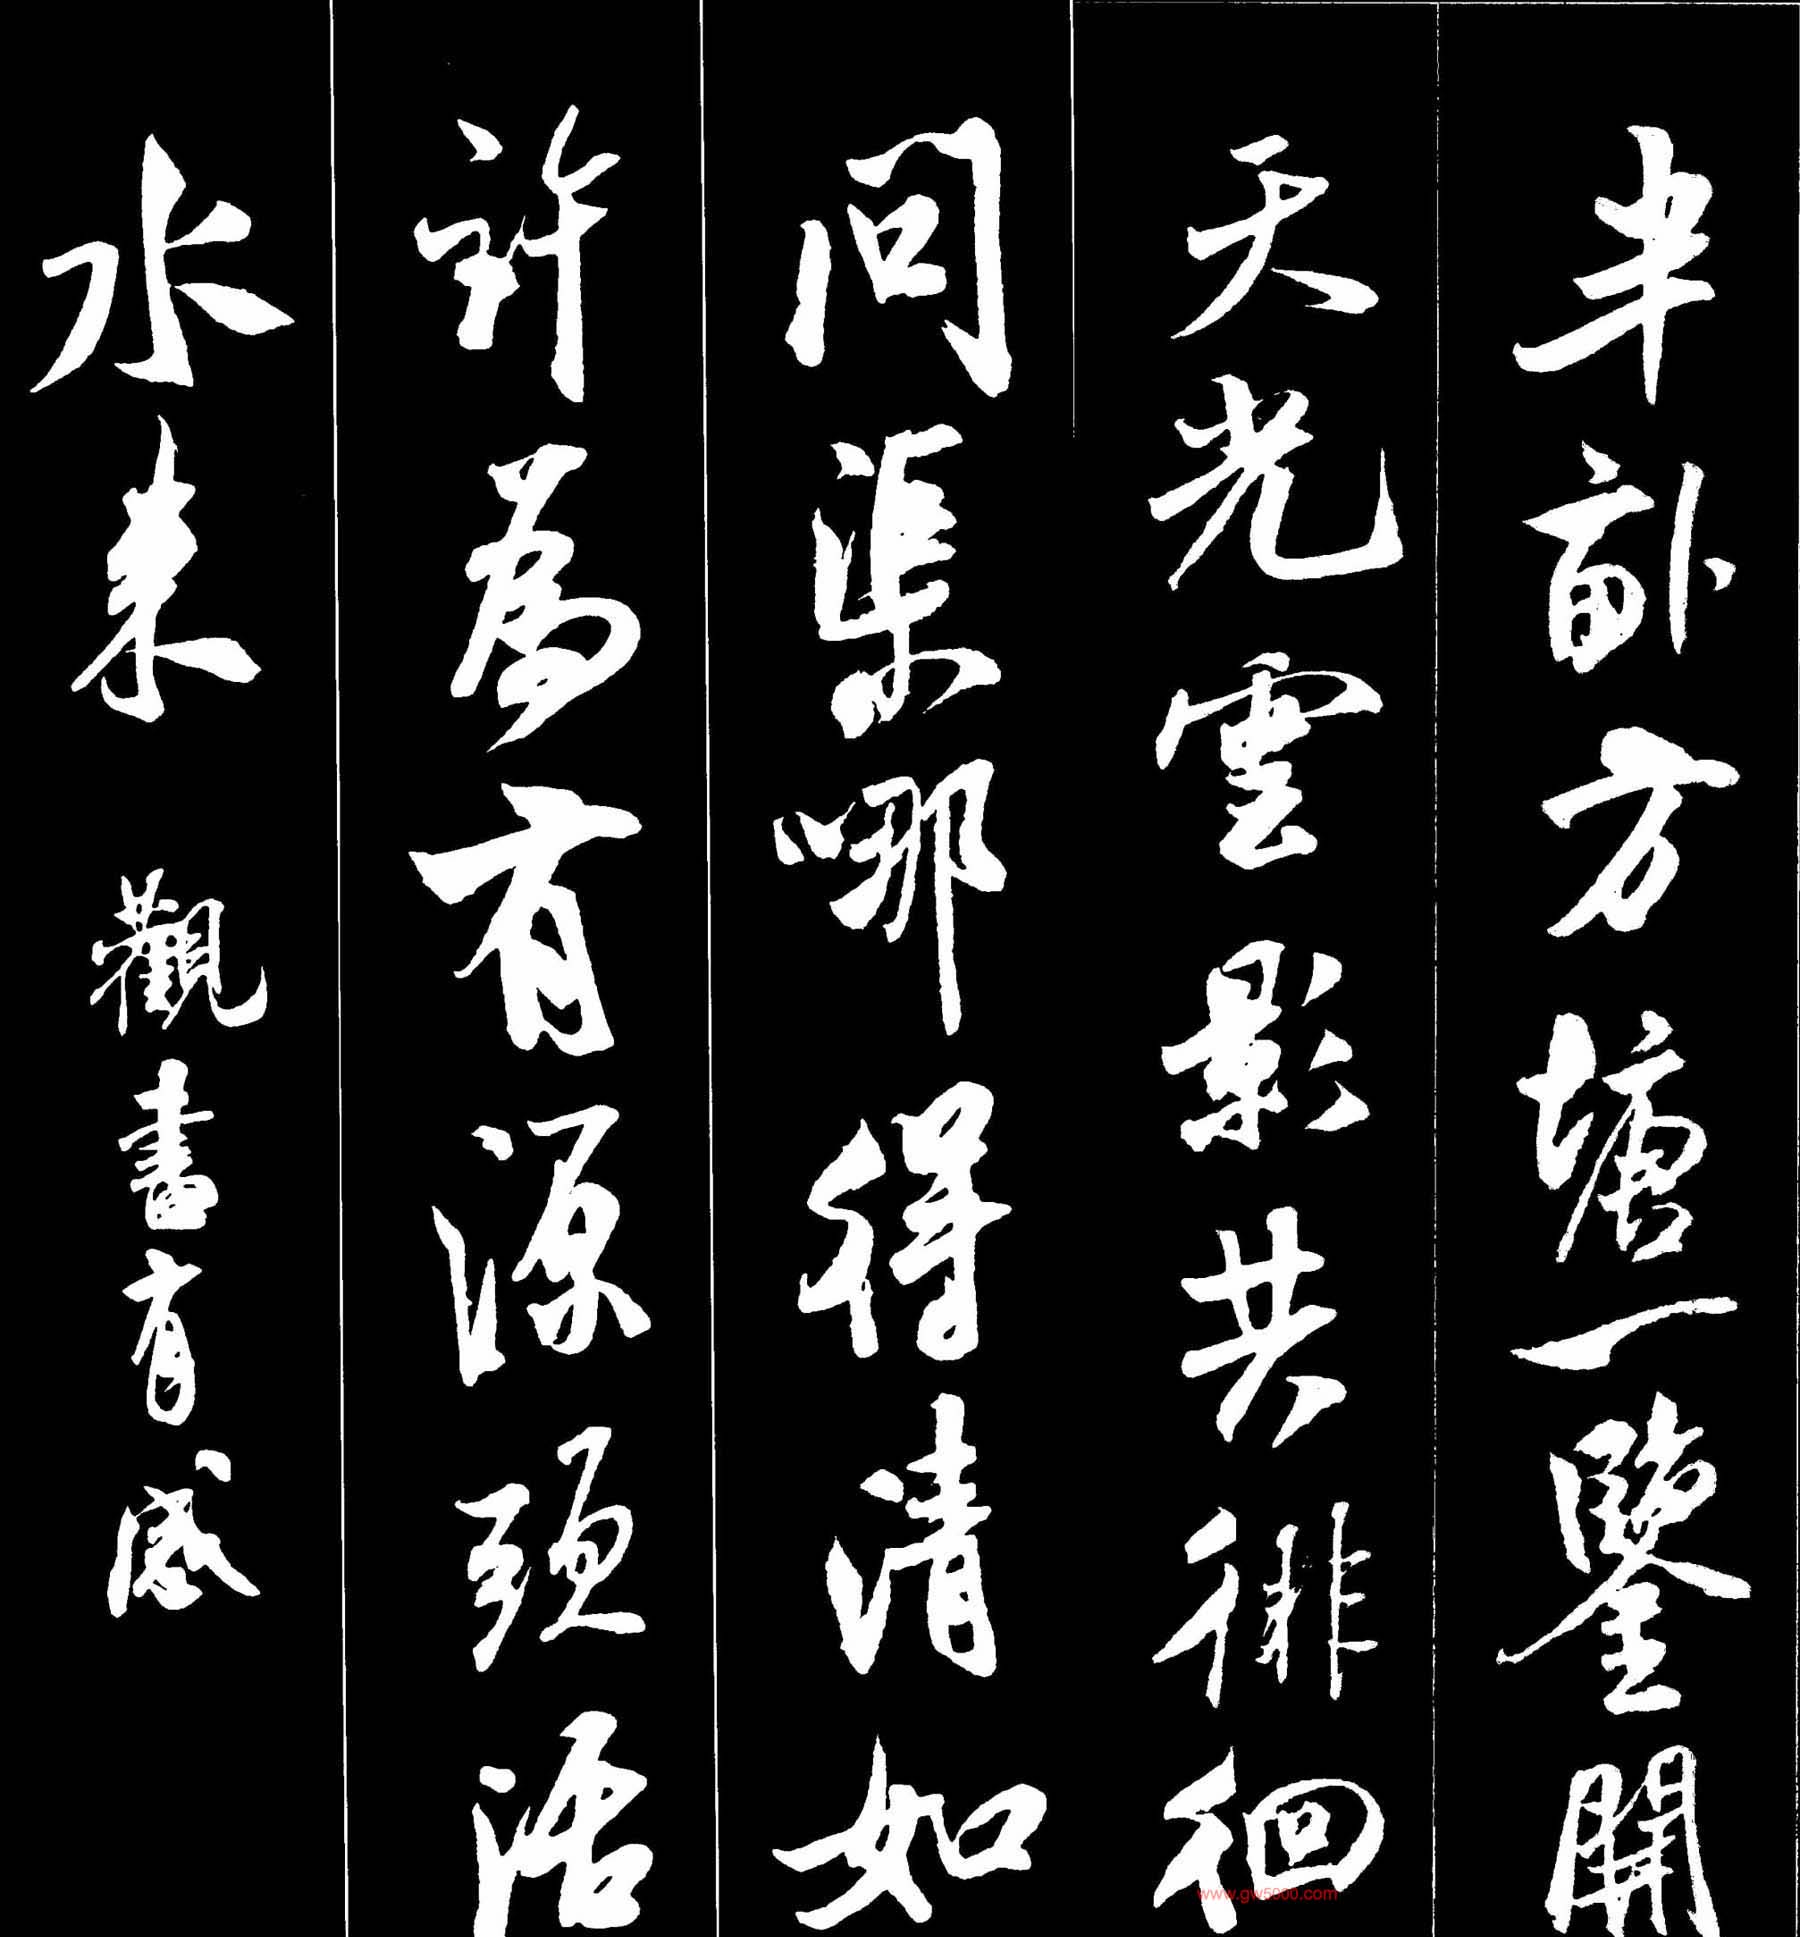 半畝方塘一鑒開
天光雲影共徘徊
問渠哪得清如
許為有源頭活
水來 觀書有感
www.gw5000.com